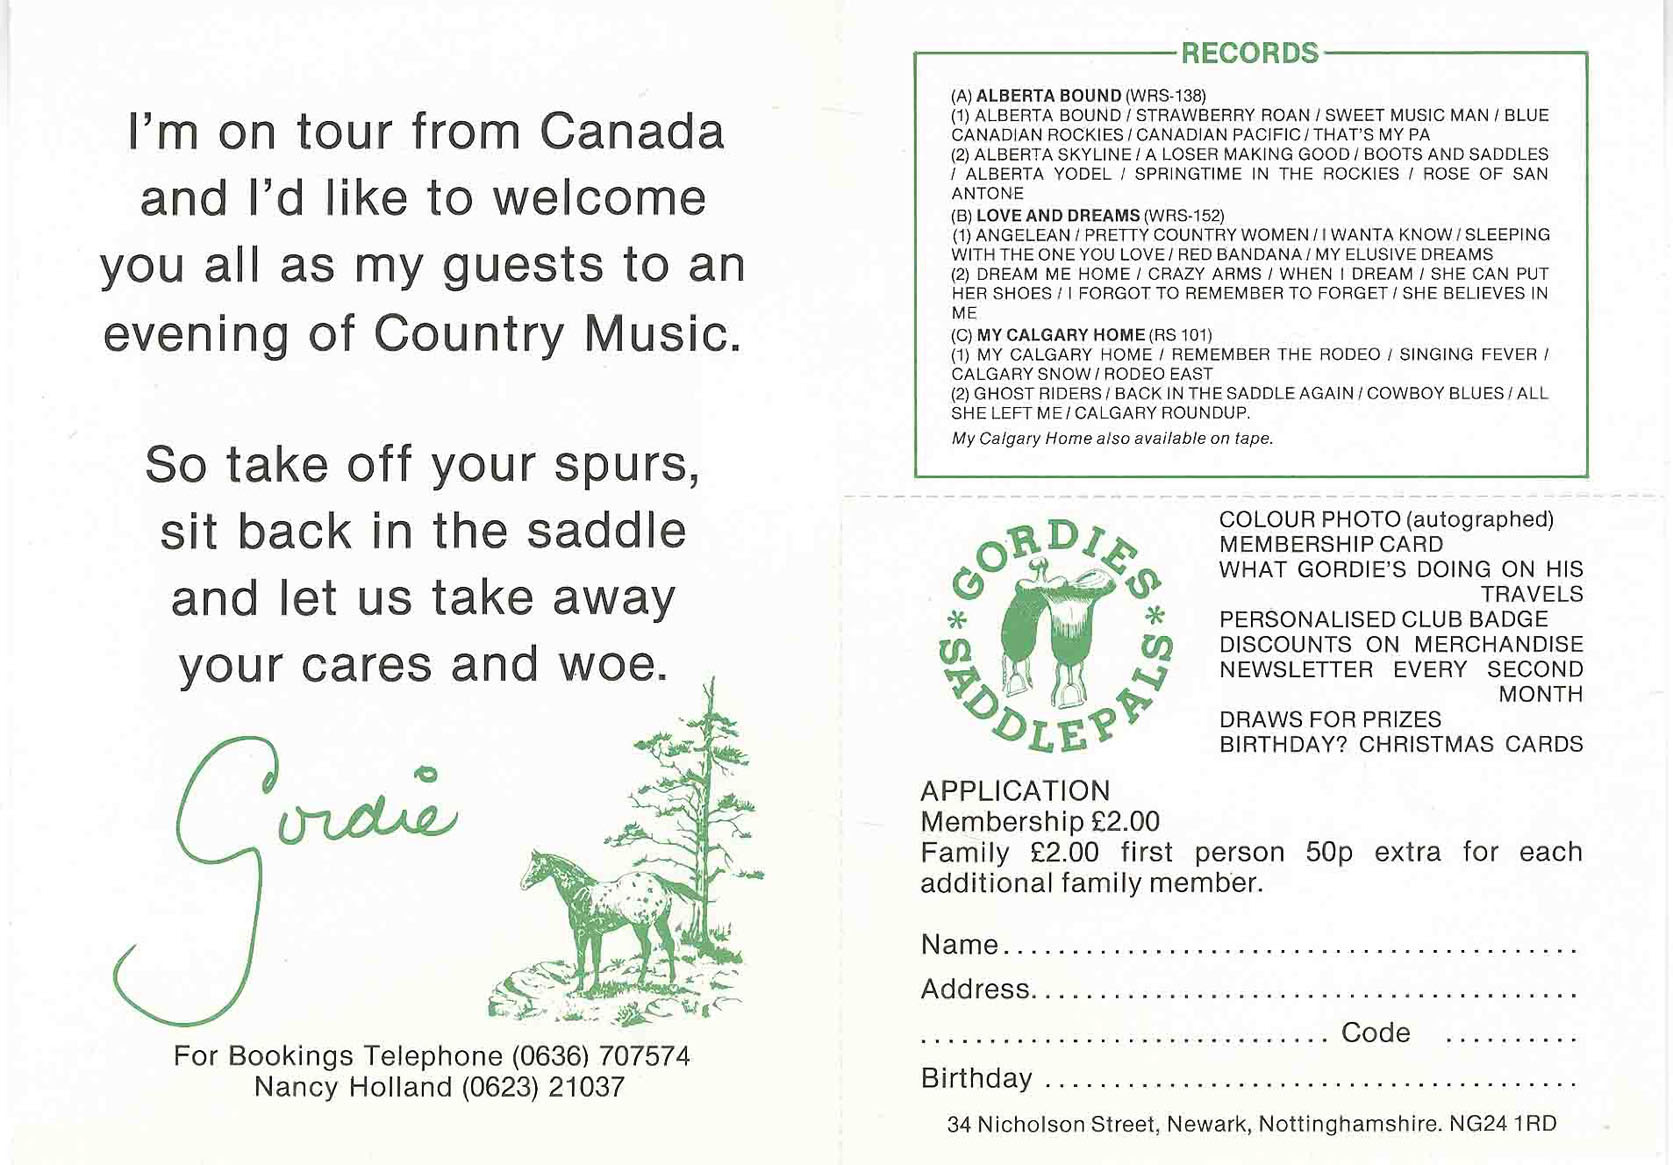 I'm on tour from Canada
and I'd like to welcome
you all as my guests to an
evening of Country Music.
So take off your spurs,
sit back in the saddle
and let us take away
your cares and woe.
Gordie
For Bookings Telephone (0636) 707574
Nancy Holland (0623) 21037
RECORDS
(A) ALBERTA BOUND (WRS-138)
(1) ALBERTA BOUND / STRAWBERRY ROAN / SWEET MUSIC MAN / BLUE
CANADIAN ROCKIES / CANADIAN PACIFIC / THAT'S MY PA
(2) ALBERTA SKYLINE / A LOSER MAKING GOOD / BOOTS AND SADDLES
/ ALBERTA YODEL / SPRINGTIME IN THE ROCKIES / ROSE OF SAN
ANTONE
(B) LOVE AND DREAMS (WRS-152)
(1) ANGELEAN / PRETTY COUNTRY WOMEN / I WANTA KNOW / SLEEPING
WITH THE ONE YOU LOVE / RED BANDANA / MY ELUSIVE DREAMS
(2) DREAM ME HOME / CRAZY ARMS / WHEN I DREAM / SHE CAN PUT
HER SHOES / I FORGOT TO REMEMBER TO FORGET / SHE BELIEVES IN
ME
(C) MY CALGARY HOME (RS 101)
(1) MY CALGARY HOME / REMEMBER THE RODEO / SINGING FEVER /
CALGARY SNOW / RODEO EAST
(2) GHOST RIDERS / BACK IN THE SADDLE AGAIN / COWBOY BLUES / ALL
SHE LEFT ME / CALGARY ROUNDUP.
My Calgary Home also available on tape.
* GORDIES *
SADDLEPALS
COLOUR PHOTO (autographed)
MEMBERSHIP CARD
WHAT GORDIE'S DOING ON HIS
TRAVELS
PERSONALISED CLUB BADGE
DISCOUNTS ON MERCHANDISE
NEWSLETTER EVERY SECOND
MONTH
DRAWS FOR PRIZES
BIRTHDAY? CHRISTMAS CARDS
APPLICATION
Membership £2.00
Family £2.00 first person 50p extra for each
additional family member.
Name..........................................
Address........................................
.............................. Code ..........
Birthday .......................................
34 Nicholson Street, Newark, Nottinghamshire. NG24 1RD